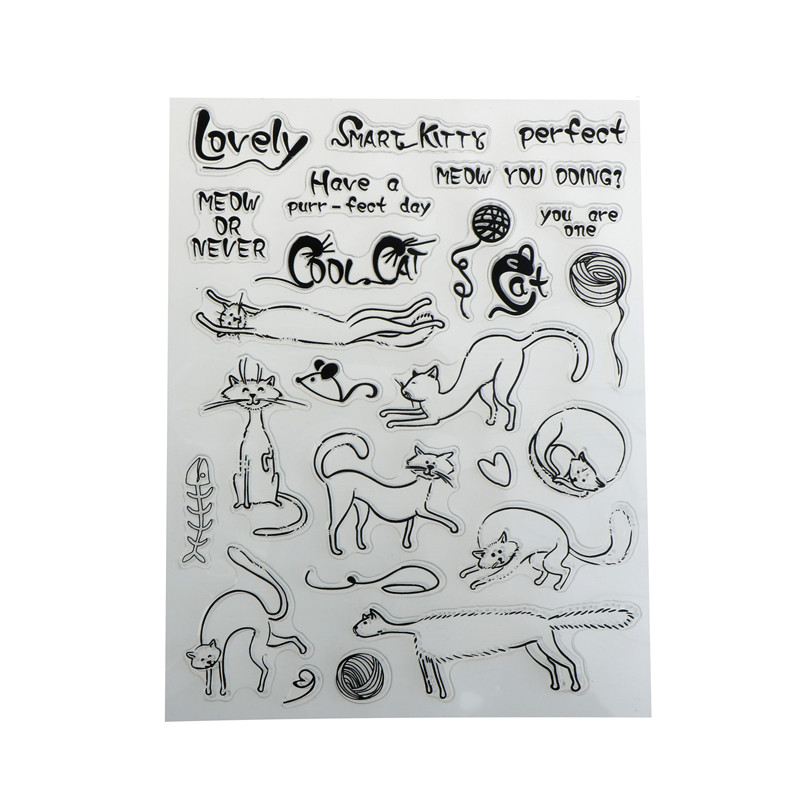 Lovely
SMART KITTY
perfect
MEOW YOU DOING?
Have a
purr-fect day
MEOW
OR
NEVER
you are
one
COOL CAT
Cat